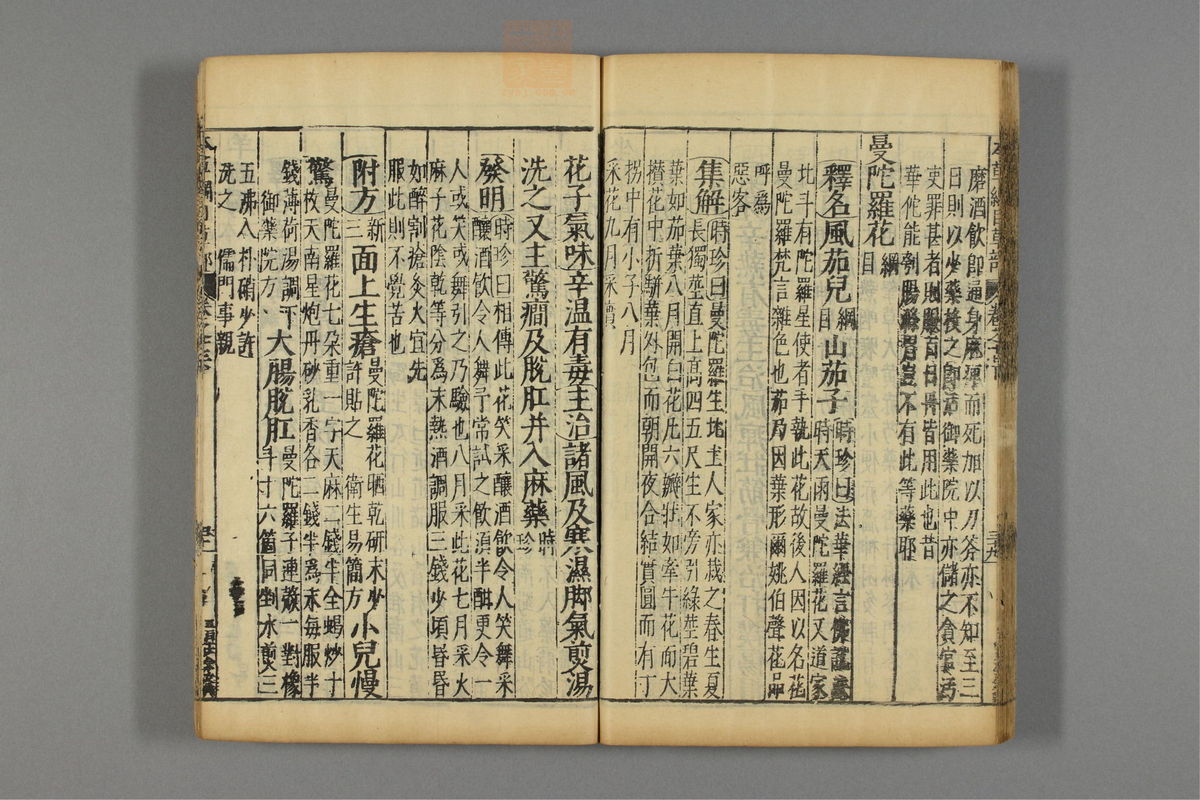 磨酒飲即通身麻痺而死加以刀斧亦不知至三
日則以少藥投之即活御藥院中亦儲之貪官污
吏罪甚者則服百日丹皆用此也昔
華佗能刳腸滌胃豈不有此等藥耶
曼陀羅花綱目
釋名風茄兒綱目山茄子時珍曰法華經言佛說法
時天雨曼陀羅花又道家
北斗有陀羅星使者手執此花故後人因以名花
曼陀羅梵言雜色也茄乃因葉形爾姚伯聲花品
呼爲
惡客
集解時珍曰曼陀羅生北土人家亦栽之春生夏
長獨莖直上高四五尺生不旁引綠莖碧葉
葉如茄葉八月開白花凡六瓣狀如牽牛花而大
攢花中折駢葉外包而朝開夜合結實圓而有丁
拐中有小子八月
采花九月采實
花子氣味辛温有毒主治諸風及寒濕脚氣煎湯
洗之又主驚癇及脫肛并入麻藥時珍
發明時珍曰相傳此花笑采釀酒飲令人笑舞采
釀酒飲令人舞予常試之飲須半酣更令一
人或笑或舞引之乃驗也八月采此花七月采火
麻子花陰乾等分爲末熱酒調服三錢少頃昏昏
如醉割瘡灸火宜先
服此則不覺苦也
附方新三面上生瘡曼陀羅花晒乾研末少許貼之 衛生易簡方小兒慢
驚曼陀羅花七朶重一字天麻二錢半全蝎炒十
枚天南星炮丹砂乳香各二錢半爲末每服半
錢薄荷湯調下
御藥院方大腸脫肛曼陀羅子連殼一對橡
斗十六箇同剉水煎三
五沸入朴硝少許
洗之 儒門事親